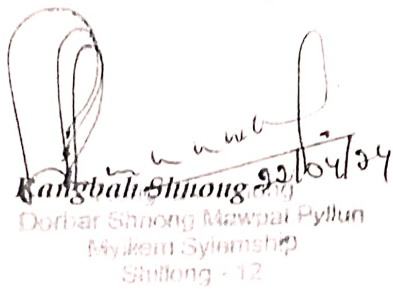 Rangbah Shnong 22/04/24
Dorbar Shnong Mawpat Pyllun
Mylliem Syiemship
Shillong - 12